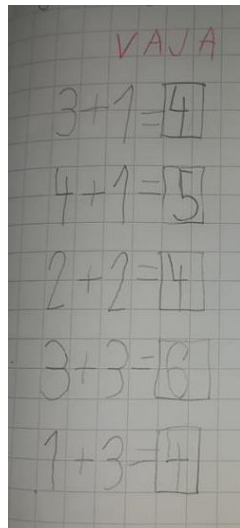 VAJA
3+1=4
4+1=5
2+2=4
3+3=6
1+3=4